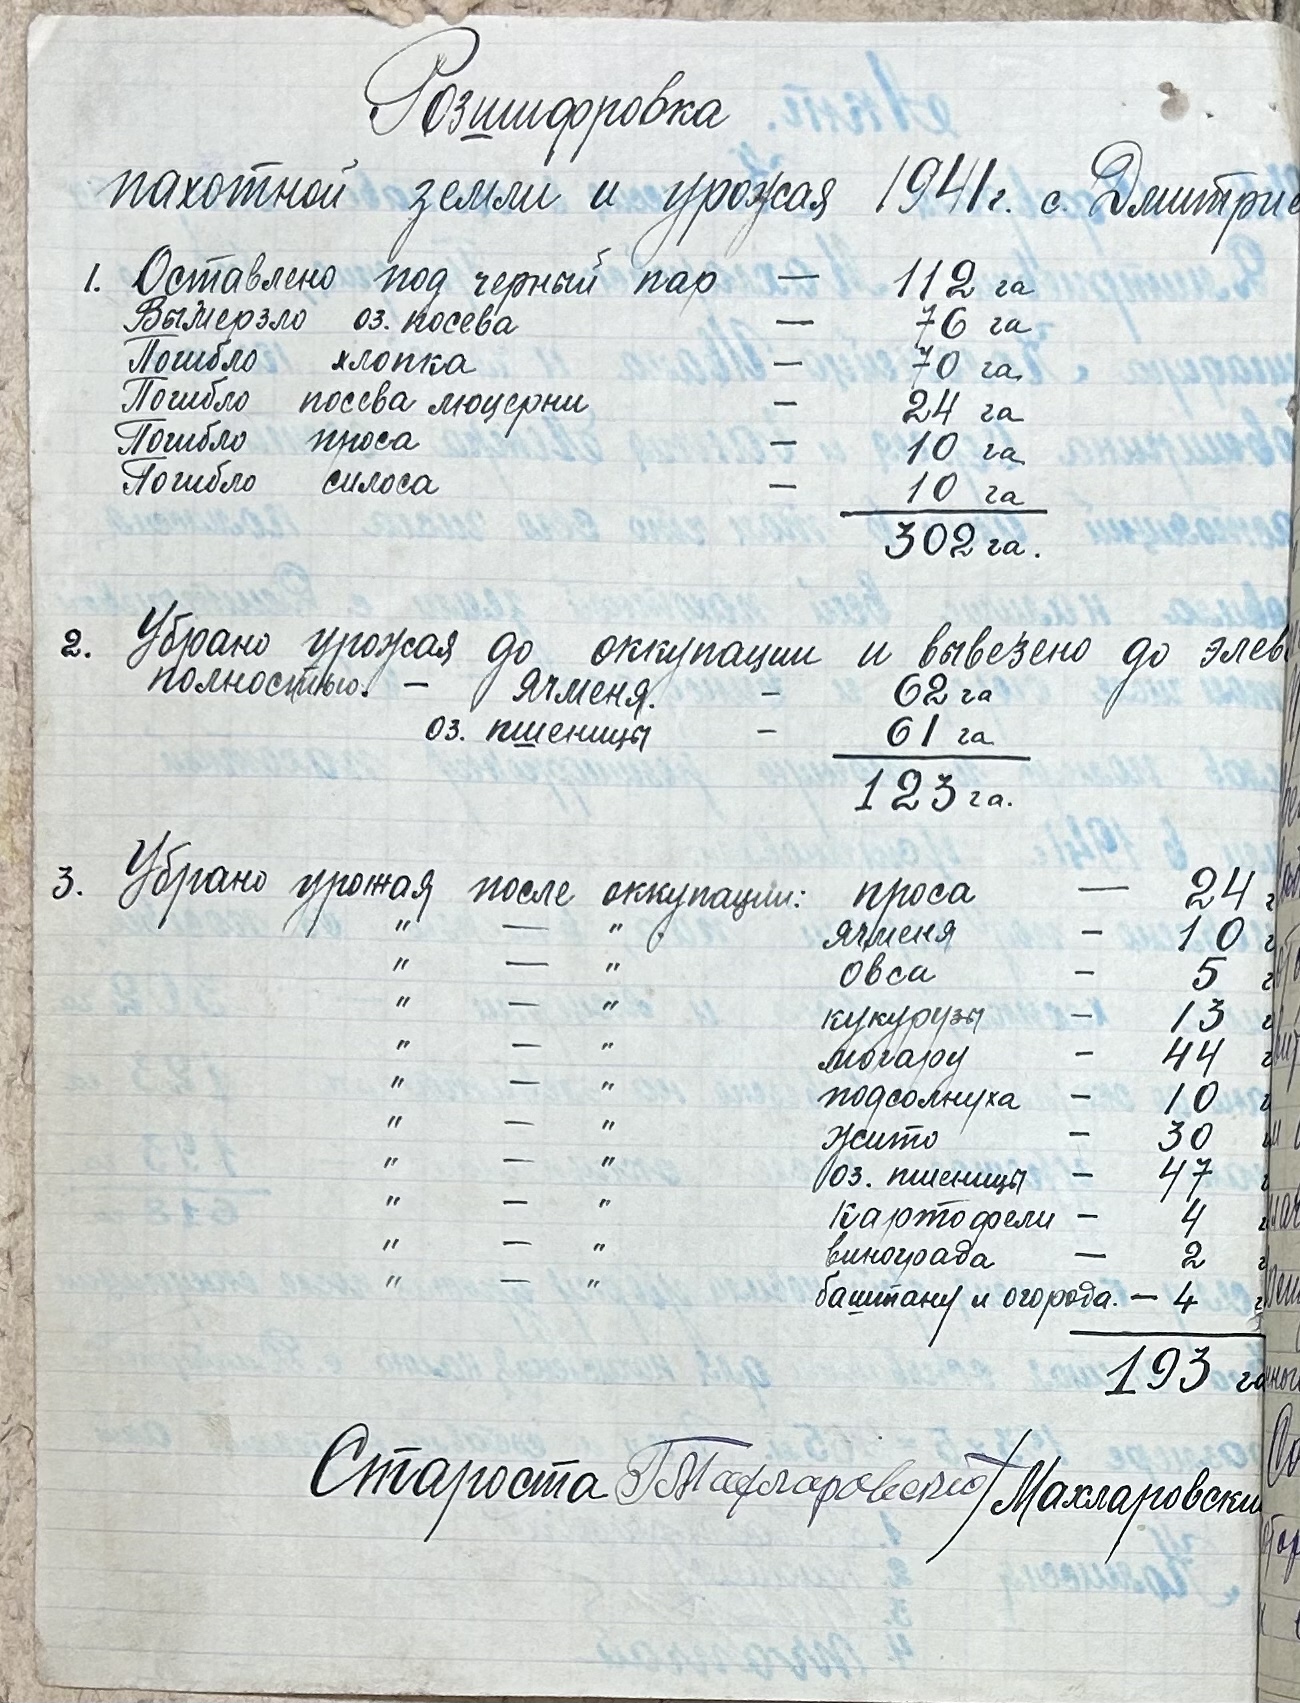 Розшифровка
пахотной земли и урожая 1941 г. с. Дмитрие
1. Оставлено под черный пар — 112 га
Вымерзло оз. посева — 76 га
Погибло хлопка — 70 га
Погибло посева люцерни — 24 га
Погибло проса — 10 га
Погибло силоса — 10 га
302 га.
2. Убрано урожая до оккупации и вывезено до элев
полностью. — Ячменя. — 62 га
оз. пшеницы — 61 га
123 га.
3. Убрано урожая после оккупации: проса — 24 г
" — " ячменя — 10 г
" — " овса — 5 г
" — " кукурузы — 13 г
" — " могару — 44 г
" — " подсолнуха — 10 г
" — " жито — 30 г
" — " оз. пшеницы — 47 г
" — " картофели — 4 г
" — " винограда — 2 г
" — " баштану и огорода. — 4 г
193 га
Староста /Махларовски